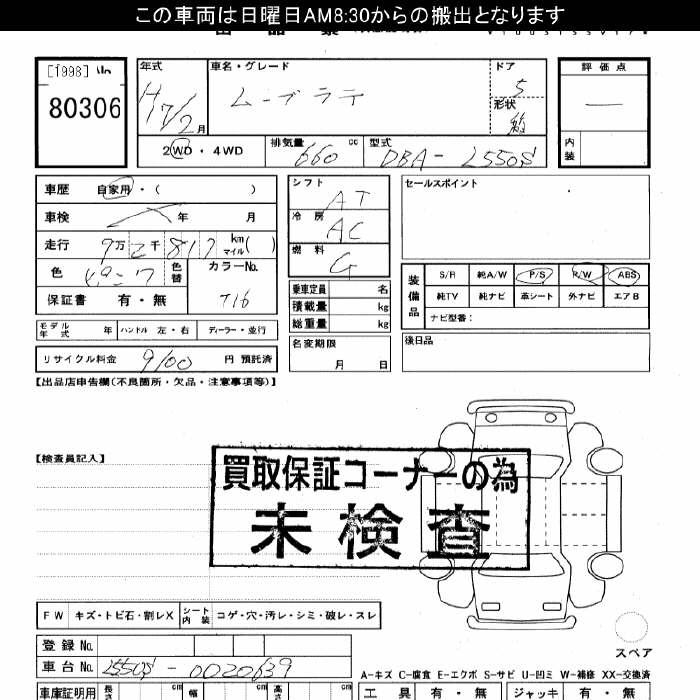 この車両は日曜日AM8:30からの搬出となります
[1998]
80306
年式
H17/2月
車名・グレード
ムーブラテ
ドア
5
形状
箱
評価点
—
内装
2WD・4WD
排気量
660 cc
型式
DBA-L550S
車歴 自家用・( )
車検 年 月
走行 9万2千817 km マイル( )
色 ピンク 色替
カラーNo.
T16
保証書 有・無
モデル年式 年 ハンドル 左・右 ディーラー・並行
リサイクル料金 9100 円 預託済
シフト
AT
冷房
AC
燃料
G
乗車定員 名
積載量 kg
総重量 kg
名変期限
月 日
セールスポイント
装備品
S/R 純A/W P/S P/W ABS
純TV 純ナビ 革シート 外ナビ エアB
ナビ型番:
後日品
【出品店申告欄(不良箇所・欠品・注意事項等)】
【検査員記入】
買取保証コーナーの為
未検査
FW キズ・トビ石・割レX シート内装 コゲ・穴・汚レ・シミ・破レ・スレ
スペア
登録No.
車台No. L550S-0020639
A-キズ C-腐食 E-エクボ S-サビ U-凹ミ W-補修 XX-交換済
車庫証明用 長さ cm 幅 cm 高さ cm
工具 有・無 ジャッキ 有・無